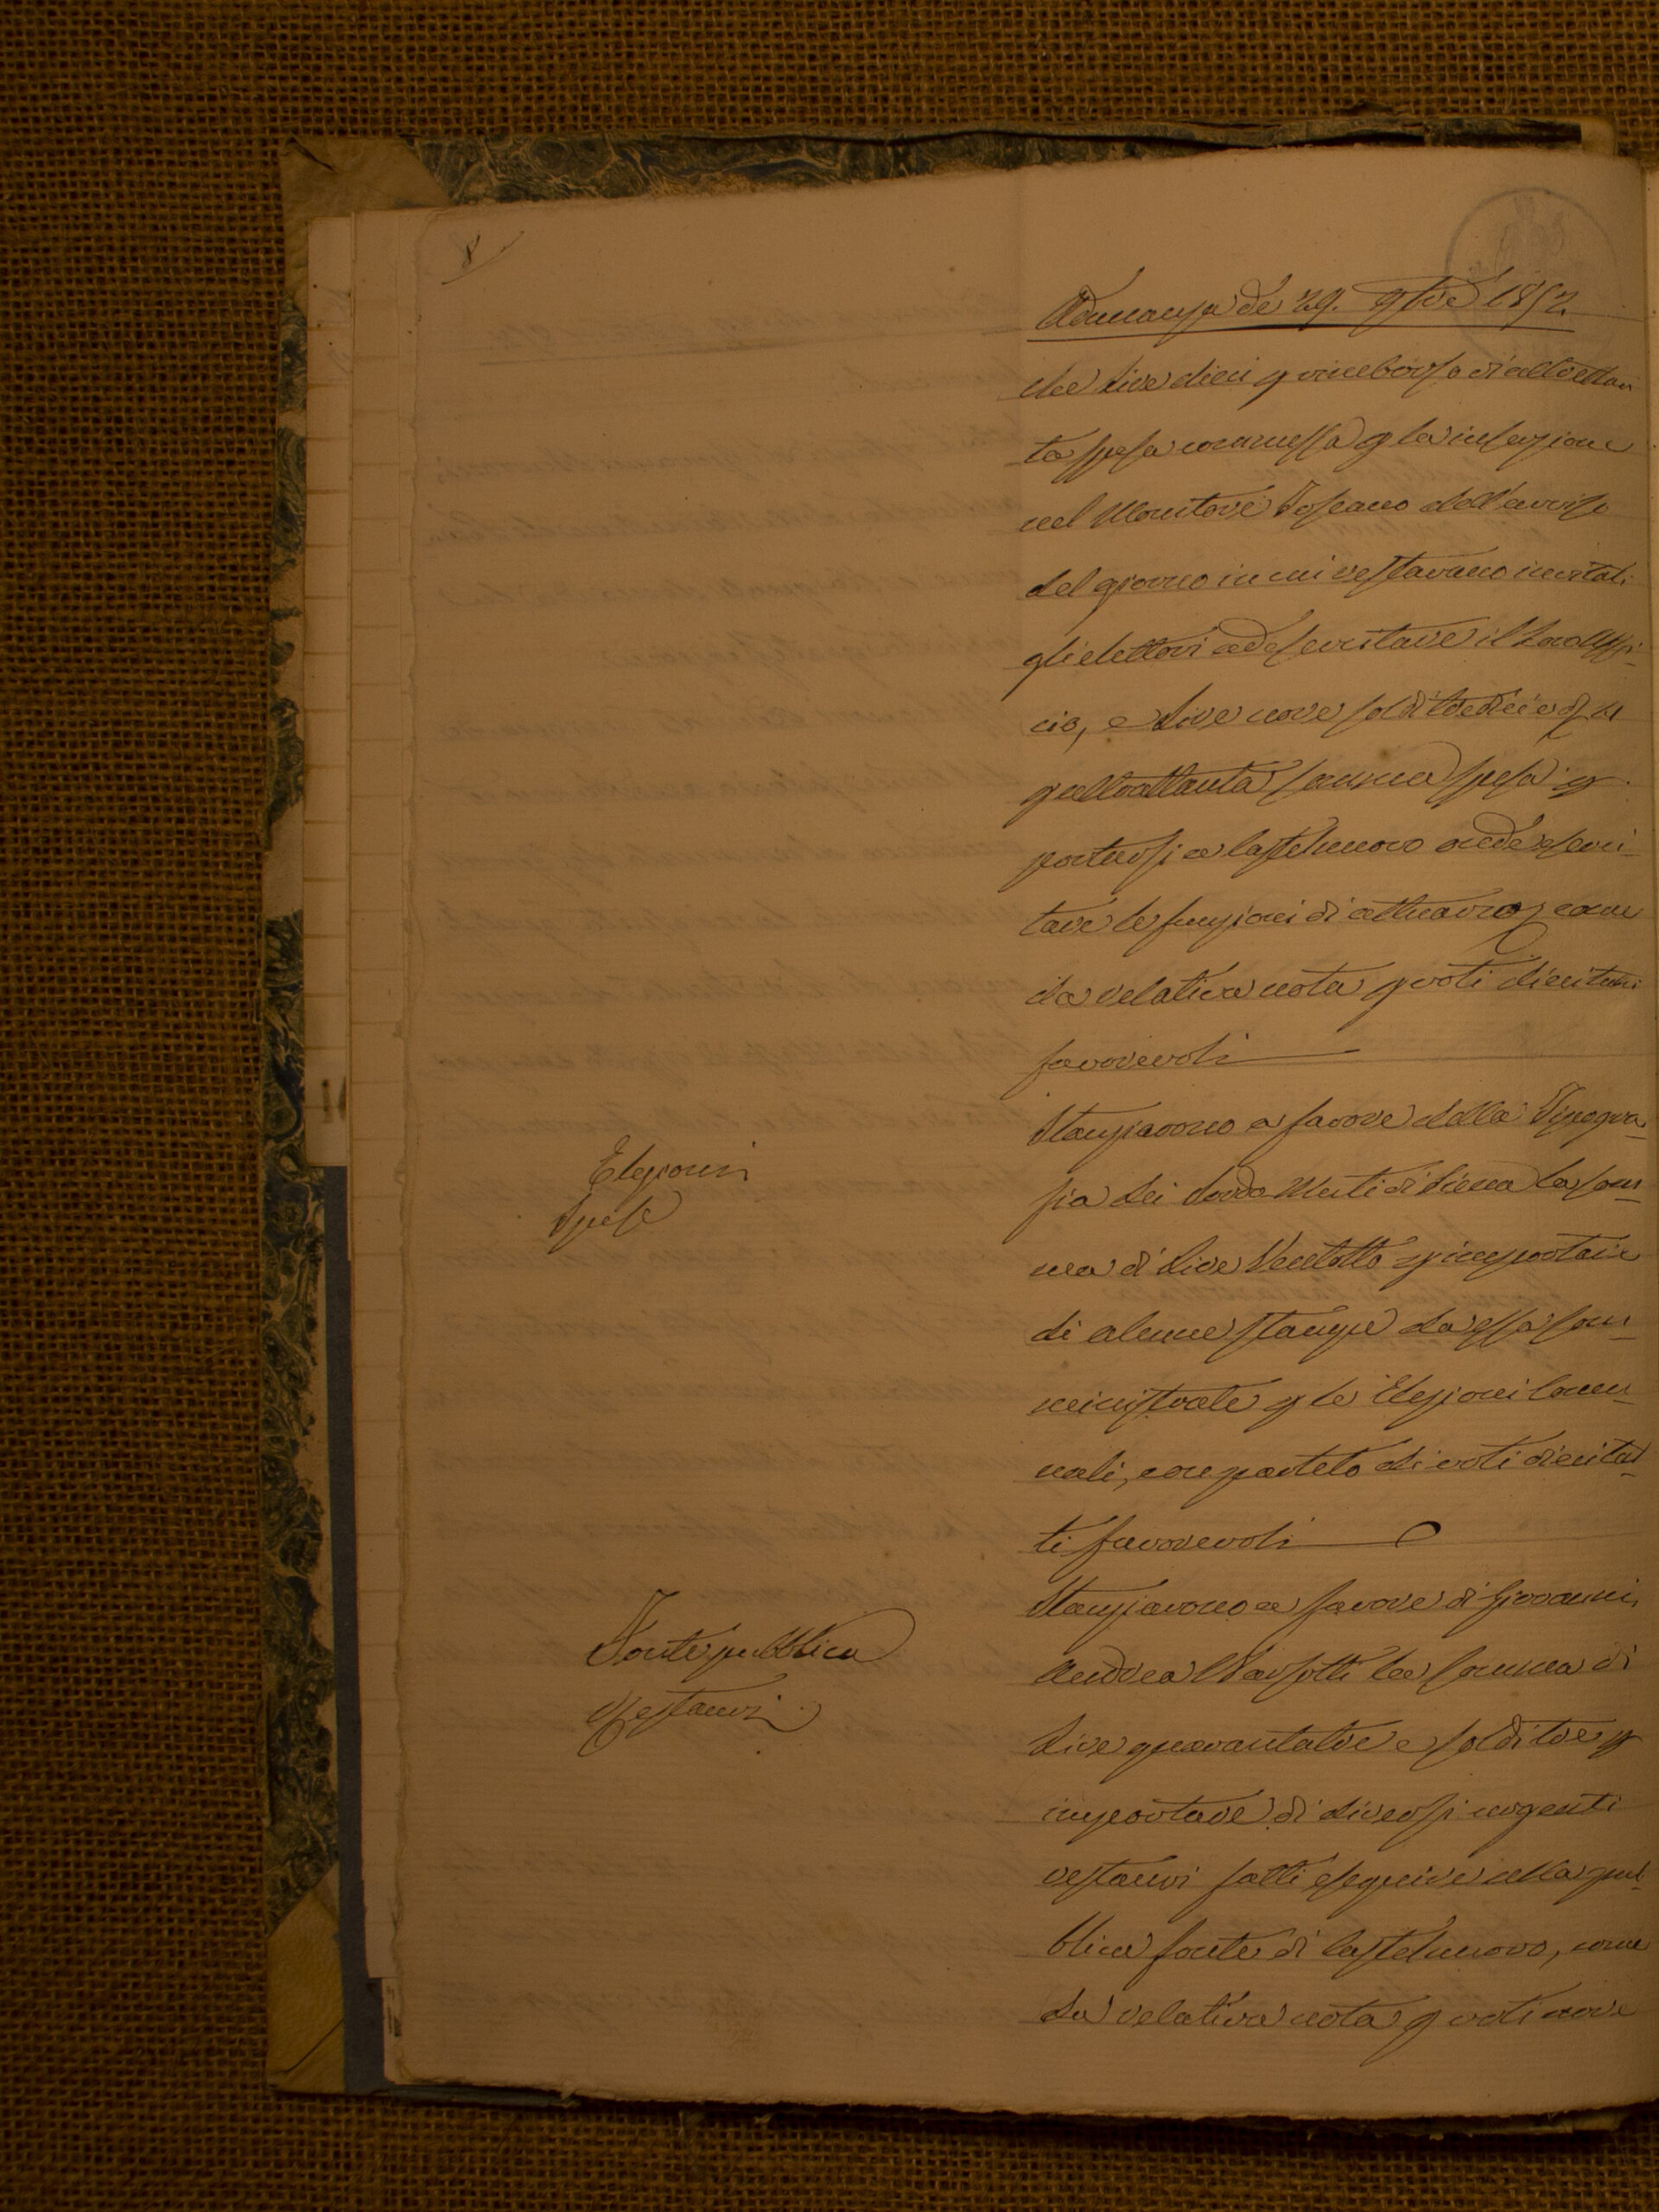 8
Adunanza de' 29. 9bre 1852.
che Lire dieci p rimborso di altrettan
ta spesa commessa p la inserzione
nel Monitore Toscano dell'avviso
del giorno in cui restavano invitati
gli elettori ad esercitare il loro Uffi-
cio, e Lire nove soldi tredici e
p altrettanta somma spesa p
portarsi a Castelnuovo onde eserci-
tare le funzioni di attuario, come
da relativa nota p voti dieci tutti
favorevoli
Elezioni
Spese
Stanziarono a favore della Tipogra-
fia dei Sordo-Muti di Siena la som-
ma di Lire Ventotto p importare
di alcune stampe da essa som-
ministrate p le Elezioni Comu-
nali, con partito di voti dieci tut-
ti favorevoli
Fonte pubblica
Restauri
Stanziarono a favore di Giovanni,
Andrea la somma di
Lire quarantatre e soldi tre p
importare di diversi urgenti
restauri fatti eseguire alla pub-
blica fonte di Castelnuovo, come
da relativa nota p voti nove